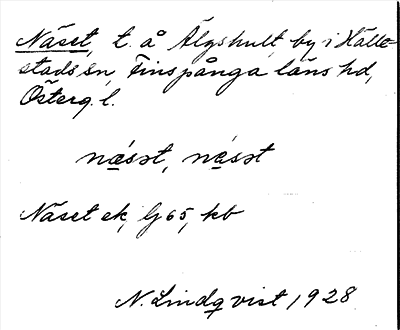 Näset, t. å Älgshult, by i Hälle-
stads sn, Finspånga läns hd,
Österg. l.
næ̀sət, næ̀sət
Näset ek, Gj 65, kb
N. Lindqvist 1928